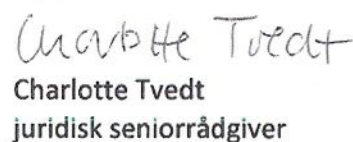 Charlotte Tvedt
Charlotte Tvedt
juridisk seniorrådgiver